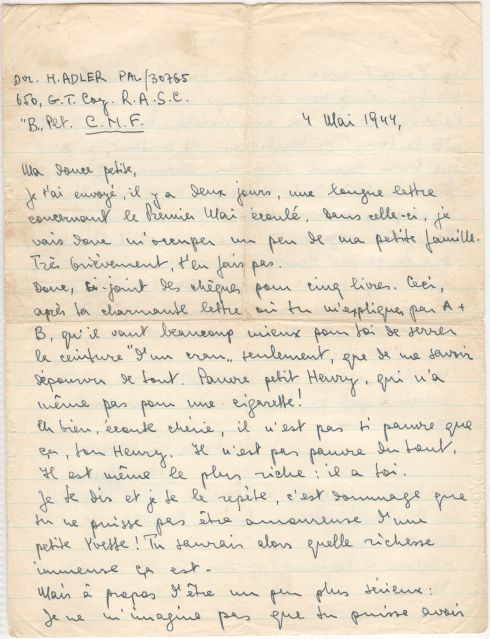 Dvr. H. ADLER PAL/30765
650, G.T. Coy. R.A.S.C.
"B" Plt. C.M.F.
4 Mai 1944,
Ma douce petite,
Je t'ai envoyé, il y a deux jours, une longue lettre
concernant le Premier Mai écoulé, dans celle-ci, je
vais donc m'occuper un peu de ma petite famille.
Très brièvement, t'en fais pas.
Donc, ci-joint des chèques pour cinq livres. Ceci,
après ta charmante lettre où tu m'expliques par A +
B, qu'il vaut beaucoup mieux pour toi de serrer
la ceinture "d'un cran" seulement, que de me savoir
dépourvu de tout. Pauvre petit Henry, qui n'a
même pas pour une cigarette!
Eh bien, écoute chérie, il n'est pas si pauvre que
ça, ton Henry. Il n'est pas pauvre du tout,
Il est même le plus riche: il a toi.
Je te dis et je te le repète, c'est dommage que
tu ne puisse pas être amoureuse d'une
petite Yvette! Tu saurais alors quelle richesse
immense ça est-
Mais à propos d'être un peu plus sérieux:
Je ne m'imagine pas que tu puisse avoir